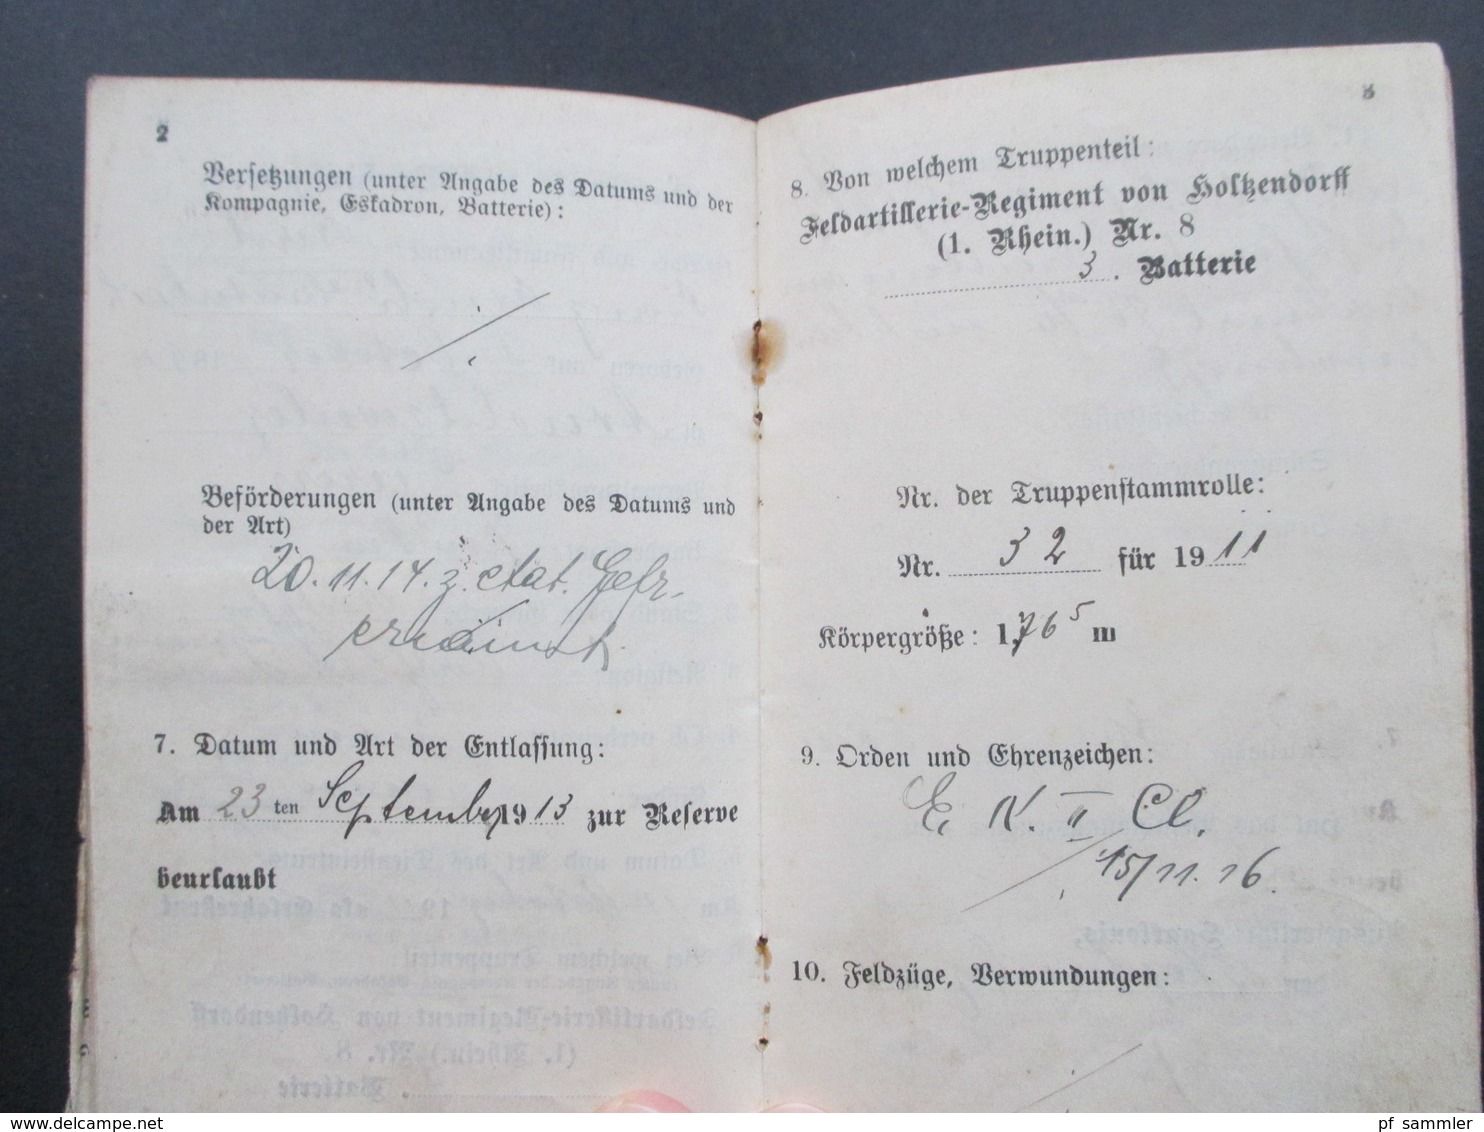 2
Versetzungen (unter Angabe des Datums und der
Kompagnie, Eskadron, Batterie):
Beförderungen (unter Angabe des Datums und
der Art)
20. 11. 14. z. etat. Gefr.
ernannt.
7. Datum und Art der Entlassung:
Am 23 ten September 1913 zur Reserve
beurlaubt
3
8. Von welchem Truppenteil:
Feldartillerie-Regiment von Holtzendorff
(1. Rhein.) Nr. 8
3. Batterie
Nr. der Truppenstammrolle:
Nr. 32 für 1911
Körpergröße: 1,76⁵ m
9. Orden und Ehrenzeichen:
E. K. II Cl.
15/11. 16.
10. Feldzüge, Verwundungen:
pf_sammler